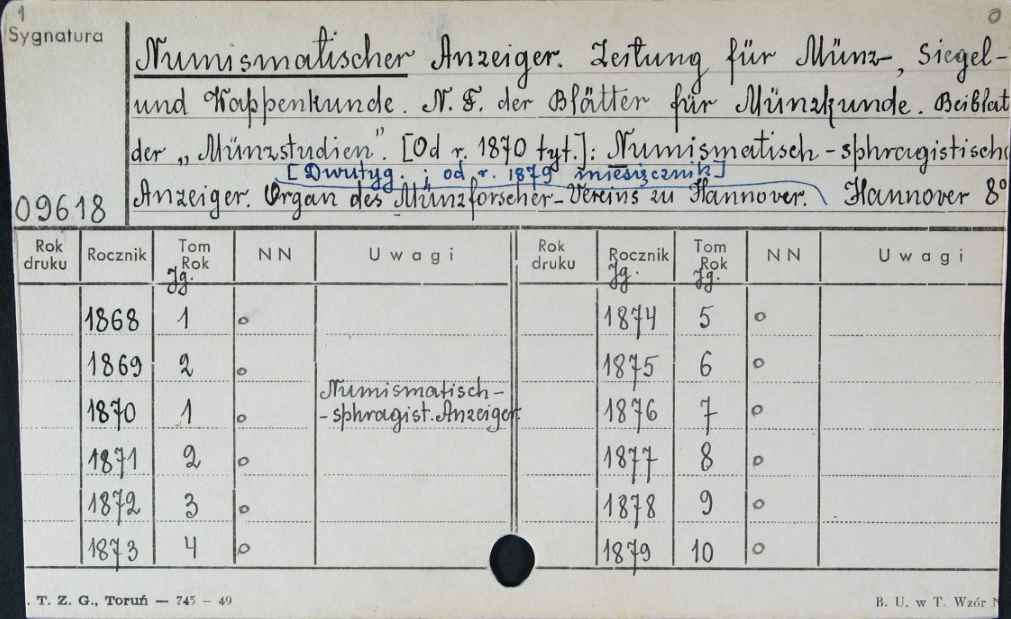 1
0
Sygnatura
Numismatischer Anzeiger. Zeitung für Münz-, Siegel-
und Wappenkunde. N. F. der Blätter für Münzkunde. Beiblat
der „Münzstudien". [Od r. 1870 tyt.]: Numismatisch-sphragistisch
[Dwutyg. ; od r. 1879 miesięcznik]
09618 Anzeiger. Organ des Münzforscher-Vereins zu Hannover. Hannover 8°
Rok druku Rocznik Tom Rok Jg. NN Uwagi Rok druku Rocznik Jg. Tom Rok Jg. NN Uwagi
1868 1 o 1874 5 o
1869 2 o 1875 6 o
1870 1 o Numismatisch-
-sphragist. Anzeiger 1876 7 o
1871 2 o 1877 8 o
1872 3 o 1878 9 o
1873 4 o 1879 10 o
. T. Z. G., Toruń — 745 – 49 B. U. w T. Wzór N